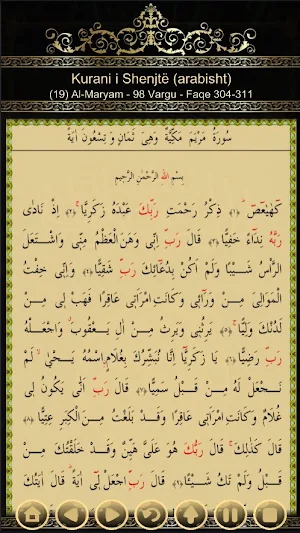 Kurani i Shenjtë (arabisht)
(19) Al-Maryam - 98 Vargu - Faqe 304-311
سُورَةُ مَرْيَمَ مَكِّيَّةٌ وَهِىَ ثَمَانٍ وَتِسْعُونَ اٰيَةً
بِسْمِ اللّٰهِ الرَّحْمٰنِ الرَّحِيمِ
كٓهٰيٰعٓصٓ ﴿١﴾ ذِكْرُ رَحْمَتِ رَبِّكَ عَبْدَهُ زَكَرِيَّا ﴿٢﴾ اِذْ نَادٰى
رَبَّهُ نِدَٓاءً خَفِيًّا ﴿٣﴾ قَالَ رَبِّ اِنِّى وَهَنَ الْعَظْمُ مِنِّى وَاشْتَعَلَ
الرَّاْسُ شَيْبًا وَلَمْ اَكُنْ بِدُعَٓائِكَ رَبِّ شَقِيًّا ﴿٤﴾ وَاِنِّى خِفْتُ
الْمَوَالِىَ مِنْ وَرَٓائِى وَكَانَتِ امْرَاَتِى عَاقِرًا فَهَبْ لِى مِنْ
لَدُنْكَ وَلِيًّا ﴿٥﴾ يَرِثُنِى وَيَرِثُ مِنْ اٰلِ يَعْقُوبَ وَاجْعَلْهُ
رَبِّ رَضِيًّا ﴿٦﴾ يَا زَكَرِيَّٓا اِنَّا نُبَشِّرُكَ بِغُلَامٍ اسْمُهُ يَحْيٰى لَمْ
نَجْعَلْ لَهُ مِنْ قَبْلُ سَمِيًّا ﴿٧﴾ قَالَ رَبِّ اَنّٰى يَكُونُ لِى
غُلَامٌ وَكَانَتِ امْرَاَتِى عَاقِرًا وَقَدْ بَلَغْتُ مِنَ الْكِبَرِ عِتِيًّا ﴿٨﴾
قَالَ كَذٰلِكَ قَالَ رَبُّكَ هُوَ عَلَىَّ هَيِّنٌ وَقَدْ خَلَقْتُكَ مِنْ
قَبْلُ وَلَمْ تَكُ شَيْئًا ﴿٩﴾ قَالَ رَبِّ اجْعَلْ لِٓى اٰيَةً قَالَ اٰيَتُكَ